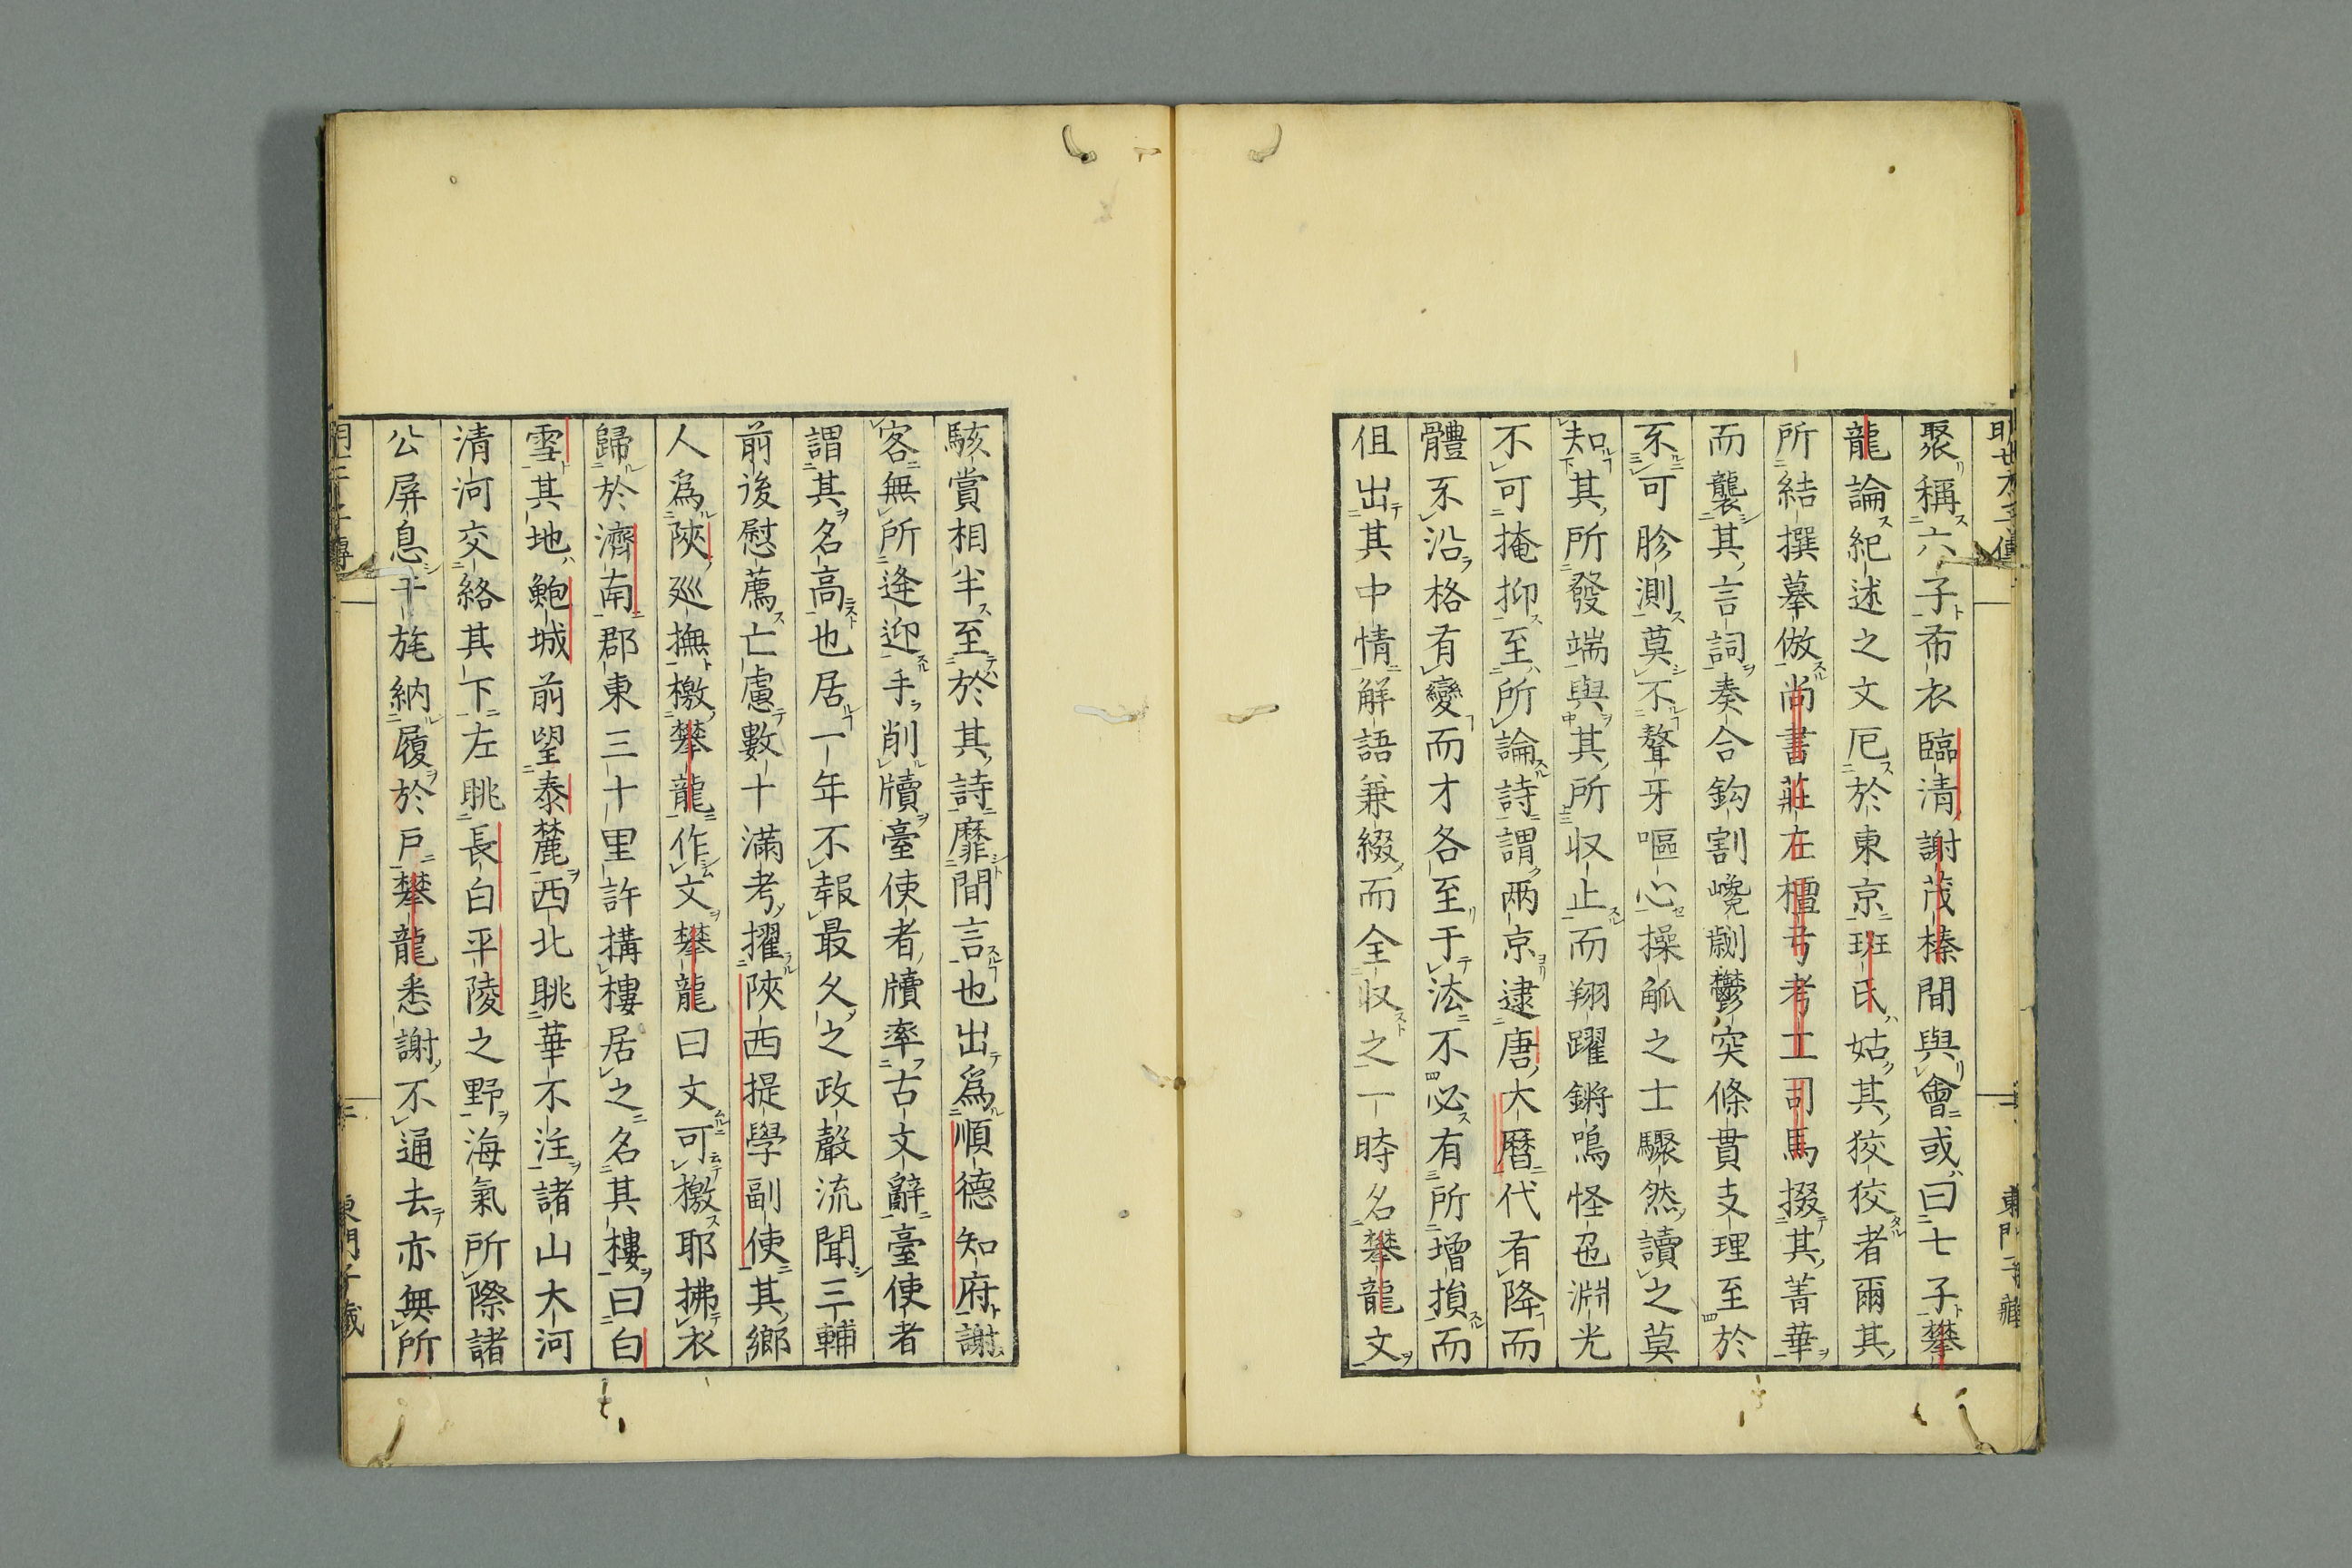 聚稱六子布衣臨清謝茂榛間與會或曰七子攀
龍論紀述之文厄於東京班氏姑其狡狡者爾其
所結撰摹倣尚書莊左檀弓考工司馬掇其菁華
而襲其言詞奏合鈎割巉劌鬱突條貫支理至於
不可胗測莫不聱牙嘔心操觚之士驟然讀之莫
知其所發端與其所収止而翔躍鏘鳴怪色淵光
不可掩抑至所論詩謂兩京逮唐大曆代有降而
體不沿格有變而才各至于法不必有所增損而
但出其中情解語兼綴而全収之一時名攀龍文
駭賞相半至於其詩靡間言也出爲順德知府謝
客無所逢迎手削牘臺使者牘率古文辭臺使者
謂其名高也居一年不報最久之政聲流聞三輔
前後慰薦亡慮數十滿考擢陝西提學副使其鄉
人爲陝廵撫檄攀龍作文攀龍曰文可檄耶拂衣
歸於濟南郡東三十里許搆樓居之名其樓曰白
雪其地鮑城前望泰麓西北眺華不注諸山大河
清河交絡其下左眺長白平陵之野海氣所際諸
公屏息干旄納履於戸攀龍悉謝不通去亦無所
東門子藏